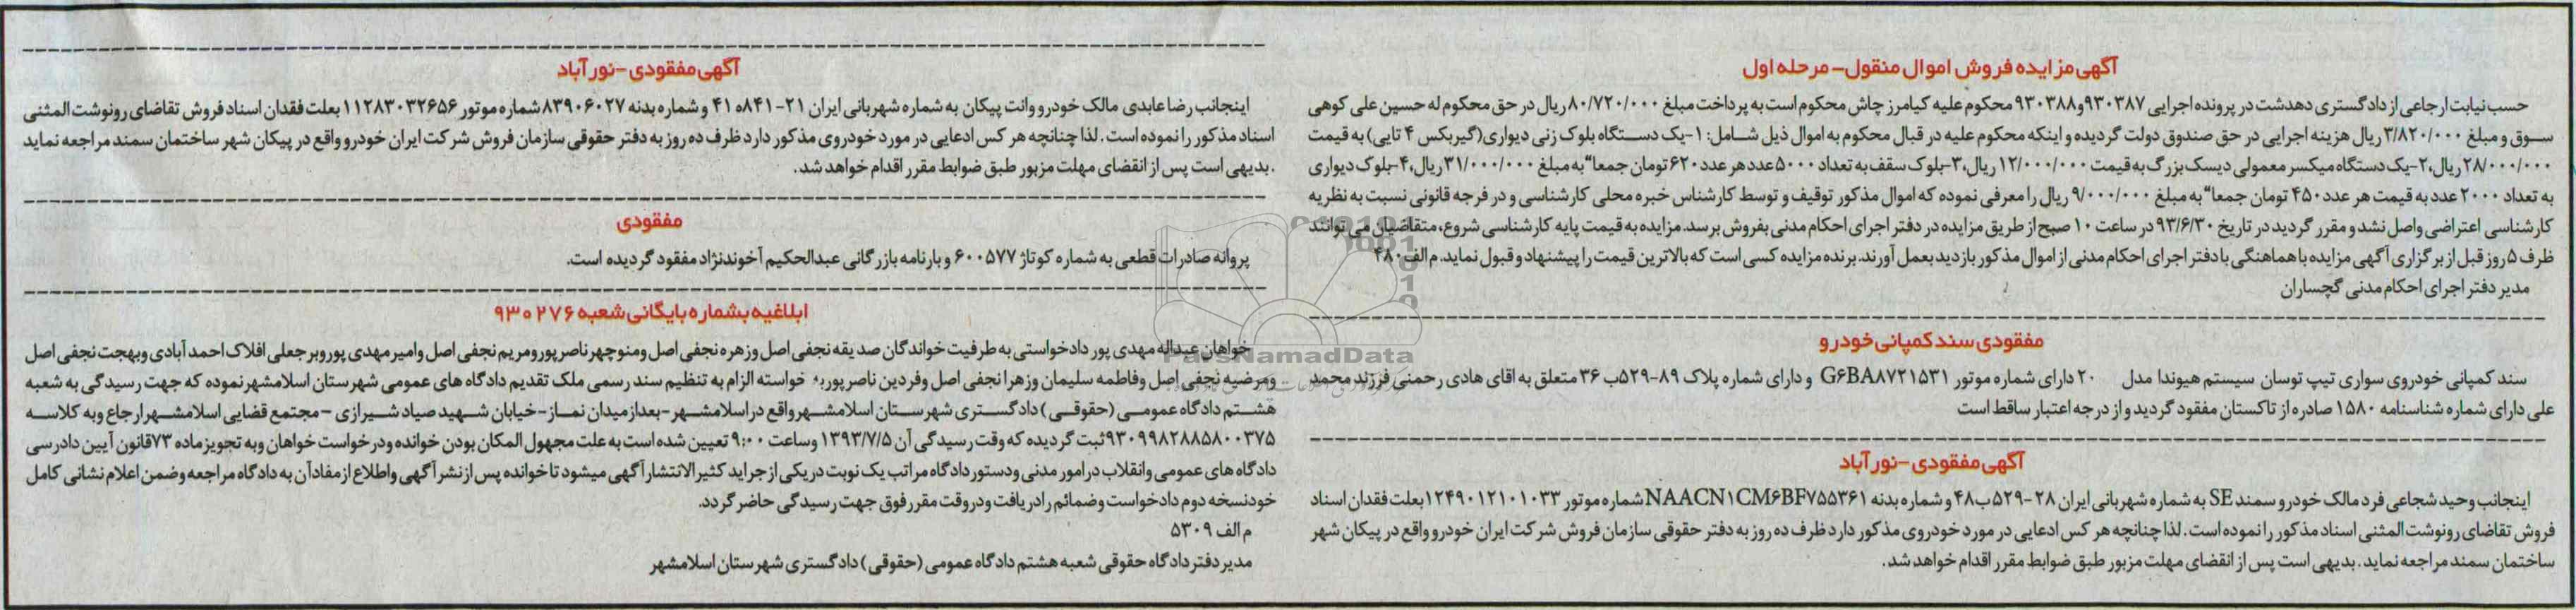 آگهی مزایده فروش اموال منقول- مرحله اول
حسب نیابت ارجاعی از دادگستری دهدشت در پرونده اجرایی ۹۳۰۳۸۷و۹۳۰۳۸۸ محکوم علیه کیامرز چاش محکوم است به پرداخت مبلغ ۸۰/۷۲۰/۰۰۰ ریال در حق محکوم له حسین علی کوهی
سوق و مبلغ ۳/۸۲۰/۰۰۰ ریال هزینه اجرایی در حق صندوق دولت گردیده و اینکه محکوم علیه در قبال محکوم به اموال ذیل شامل: ۱-یک دستگاه بلوک زنی دیواری(گیربکس ۴ تایی) به قیمت
۲۸/۰۰۰/۰۰۰ ریال،۲-یک دستگاه میکسر معمولی دیسک بزرگ به قیمت ۱۲/۰۰۰/۰۰۰ ریال،۳-بلوک سقف به تعداد ۵۰۰۰عدد هر عدد ۶۲۰ تومان جمعا" به مبلغ ۳۱/۰۰۰/۰۰۰ ریال،۴-بلوک دیواری
به تعداد ۲۰۰۰ عدد به قیمت هر عدد ۴۵۰ تومان جمعا" به مبلغ ۹/۰۰۰/۰۰۰ ریال را معرفی نموده که اموال مذکور توقیف و توسط کارشناس خبره محلی کارشناسی و در فرجه قانونی نسبت به نظریه
کارشناسی اعتراضی واصل نشد و مقرر گردید در تاریخ ۹۳/۶/۳۰ در ساعت ۱۰ صبح از طریق مزایده در دفتر اجرای احکام مدنی بفروش برسد. مزایده به قیمت پایه کارشناسی شروع، متقاضیان می توانند
ظرف ۵ روز قبل از برگزاری آگهی مزایده با هماهنگی با دفتر اجرای احکام مدنی از اموال مذکور بازدید بعمل آورند. برنده مزایده کسی است که بالاترین قیمت را پیشنهاد و قبول نماید. م الف ۴۸۰
مدیر دفتر اجرای احکام مدنی گچساران
مفقودی سند کمپانی خودرو
سند کمپانی خودروی سواری تیپ توسان سیستم هیوندا مدل ۲۰ دارای شماره موتور G۶BA۸۷۲۱۵۳۱ و دارای شماره پلاک ۸۹-۵۲۹ب ۳۶ متعلق به اقای هادی رحمنی فرزند محمد
علی دارای شماره شناسنامه ۱۵۸۰ صادره از تاکستان مفقود گردید و از درجه اعتبار ساقط است
آگهی مفقودی -نورآباد
اینجانب وحید شجاعی فرد مالک خودرو سمند SE به شماره شهربانی ایران ۲۸-۵۲۹ب۴۸ و شماره بدنه NAACN۱CM۶BF۷۵۵۳۶۱ شماره موتور ۱۲۴۹۰۱۲۱۰۱۰۳۳ بعلت فقدان اسناد
فروش تقاضای رونوشت المثنی اسناد مذکور را نموده است. لذا چنانچه هر کس ادعایی در مورد خودروی مذکور دارد ظرف ده روز به دفتر حقوقی سازمان فروش شرکت ایران خودرو واقع در پیکان شهر
ساختمان سمند مراجعه نماید. بدیهی است پس از انقضای مهلت مزبور طبق ضوابط مقرر اقدام خواهد شد.
آگهی مفقودی -نورآباد
اینجانب رضا عابدی مالک خودرو وانت پیکان به شماره شهربانی ایران ۲۱-۸۴۱ه ۴۱ و شماره بدنه ۸۳۹۰۶۰۲۷ شماره موتور ۱۱۲۸۳۰۳۲۶۵۶ بعلت فقدان اسناد فروش تقاضای رونوشت المثنی
اسناد مذکور را نموده است. لذا چنانچه هر کس ادعایی در مورد خودروی مذکور دارد ظرف ده روز به دفتر حقوقی سازمان فروش شرکت ایران خودرو واقع در پیکان شهر ساختمان سمند مراجعه نماید
.بدیهی است پس از انقضای مهلت مزبور طبق ضوابط مقرر اقدام خواهد شد.
مفقودی
پروانه صادرات قطعی به شماره کوتاژ ۶۰۰۵۷۷ و بارنامه بازرگانی عبدالحکیم آخوندنژاد مفقود گردیده است.
ابلاغیه بشماره بایگانی شعبه ۹۳۰۲۷۶
خواهان عبداله مهدی پور دادخواستی به طرفیت خواندگان صدیقه نجفی اصل وزهره نجفی اصل ومنوچهر ناصرپور ومریم نجفی اصل وامیر مهدی پور وبرجعلی افلاک احمد آبادی وبهجت نجفی اصل
ومرضیه نجفی اصل وفاطمه سلیمان وزهرا نجفی اصل وفردین ناصرپور به خواسته الزام به تنظیم سند رسمی ملک تقدیم دادگاه های عمومی شهرستان اسلامشهر نموده که جهت رسیدگی به شعبه
هشتم دادگاه عمومی (حقوقی) دادگستری شهرستان اسلامشهر واقع در اسلامشهر-بعد از میدان نماز-خیابان شهید صیاد شیرازی -مجتمع قضایی اسلامشهر ارجاع وبه کلاسه
۹۳۰۹۹۸۲۸۸۵۸۰۰۳۷۵ ثبت گردیده که وقت رسیدگی آن ۱۳۹۳/۷/۵ وساعت ۹:۰۰ تعیین شده است به علت مجهول المکان بودن خوانده ودرخواست خواهان وبه تجویز ماده ۷۳ قانون آیین دادرسی
دادگاه های عمومی وانقلاب در امور مدنی ودستور دادگاه مراتب یک نوبت در یکی از جراید کثیرالانتشار آگهی میشود تا خوانده پس از نشر آگهی واطلاع از مفاد آن به دادگاه مراجعه وضمن اعلام نشانی کامل
خود نسخه دوم دادخواست وضمائم را دریافت ودر وقت مقرر فوق جهت رسیدگی حاضر گردد.
م الف ۵۳۰۹
مدیر دفتر دادگاه حقوقی شعبه هشتم دادگاه عمومی (حقوقی) دادگستری شهرستان اسلامشهر
ParsNamadData